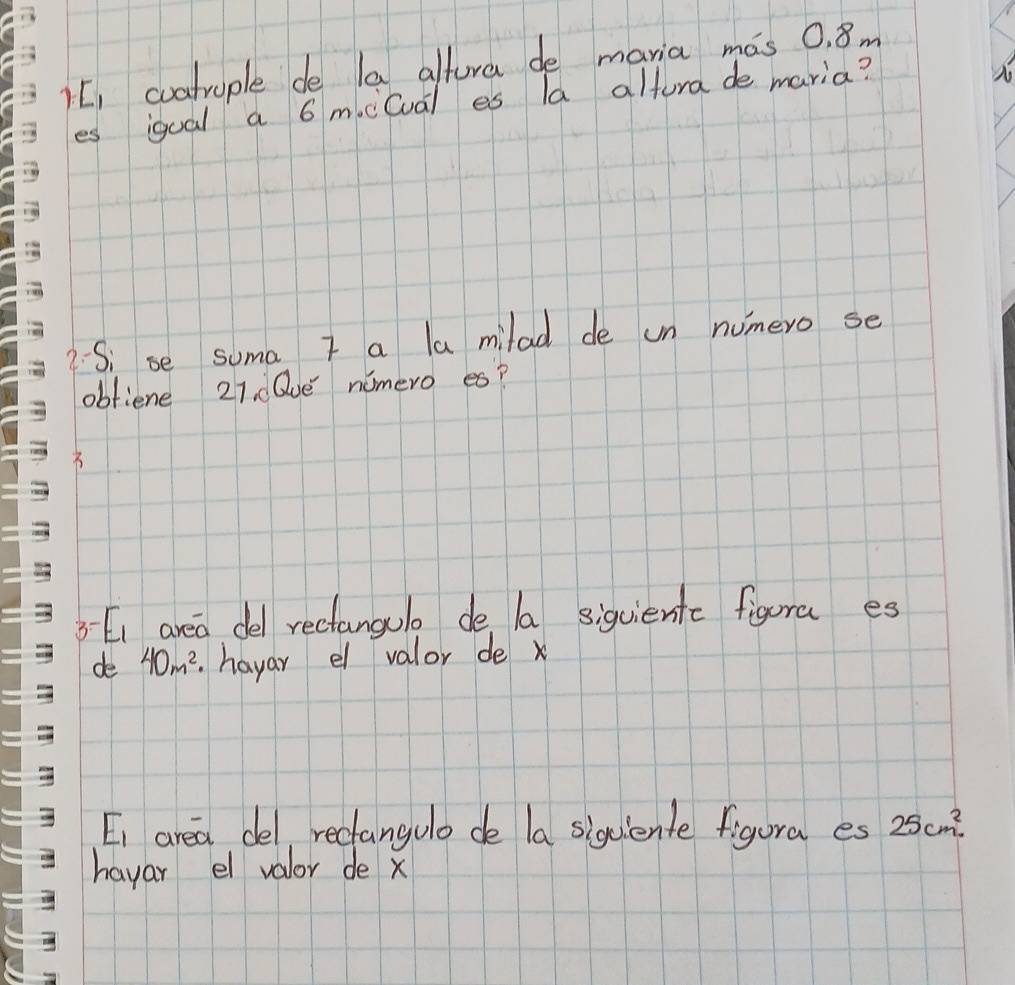 1-El cuatruple de la altura de maria más 0.8m
es igual a 6 m.¿Cuál es la altura de maria?
2-Si se suma 7 a la mitad de un número se
obtiene 21.¿Qué número es?
3
3-El area del rectangulo de la siguiente figura es
de 40m². hayar el valor de x
El area del rectangulo de la siguiente figura es 25cm².
hayar el valor de x